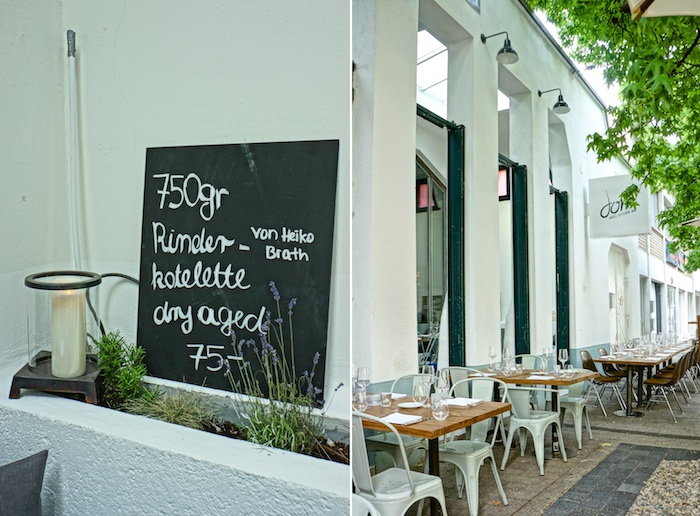 750gr
Rinder-
kotelette
dry aged
75,-
von Heiko
Brath